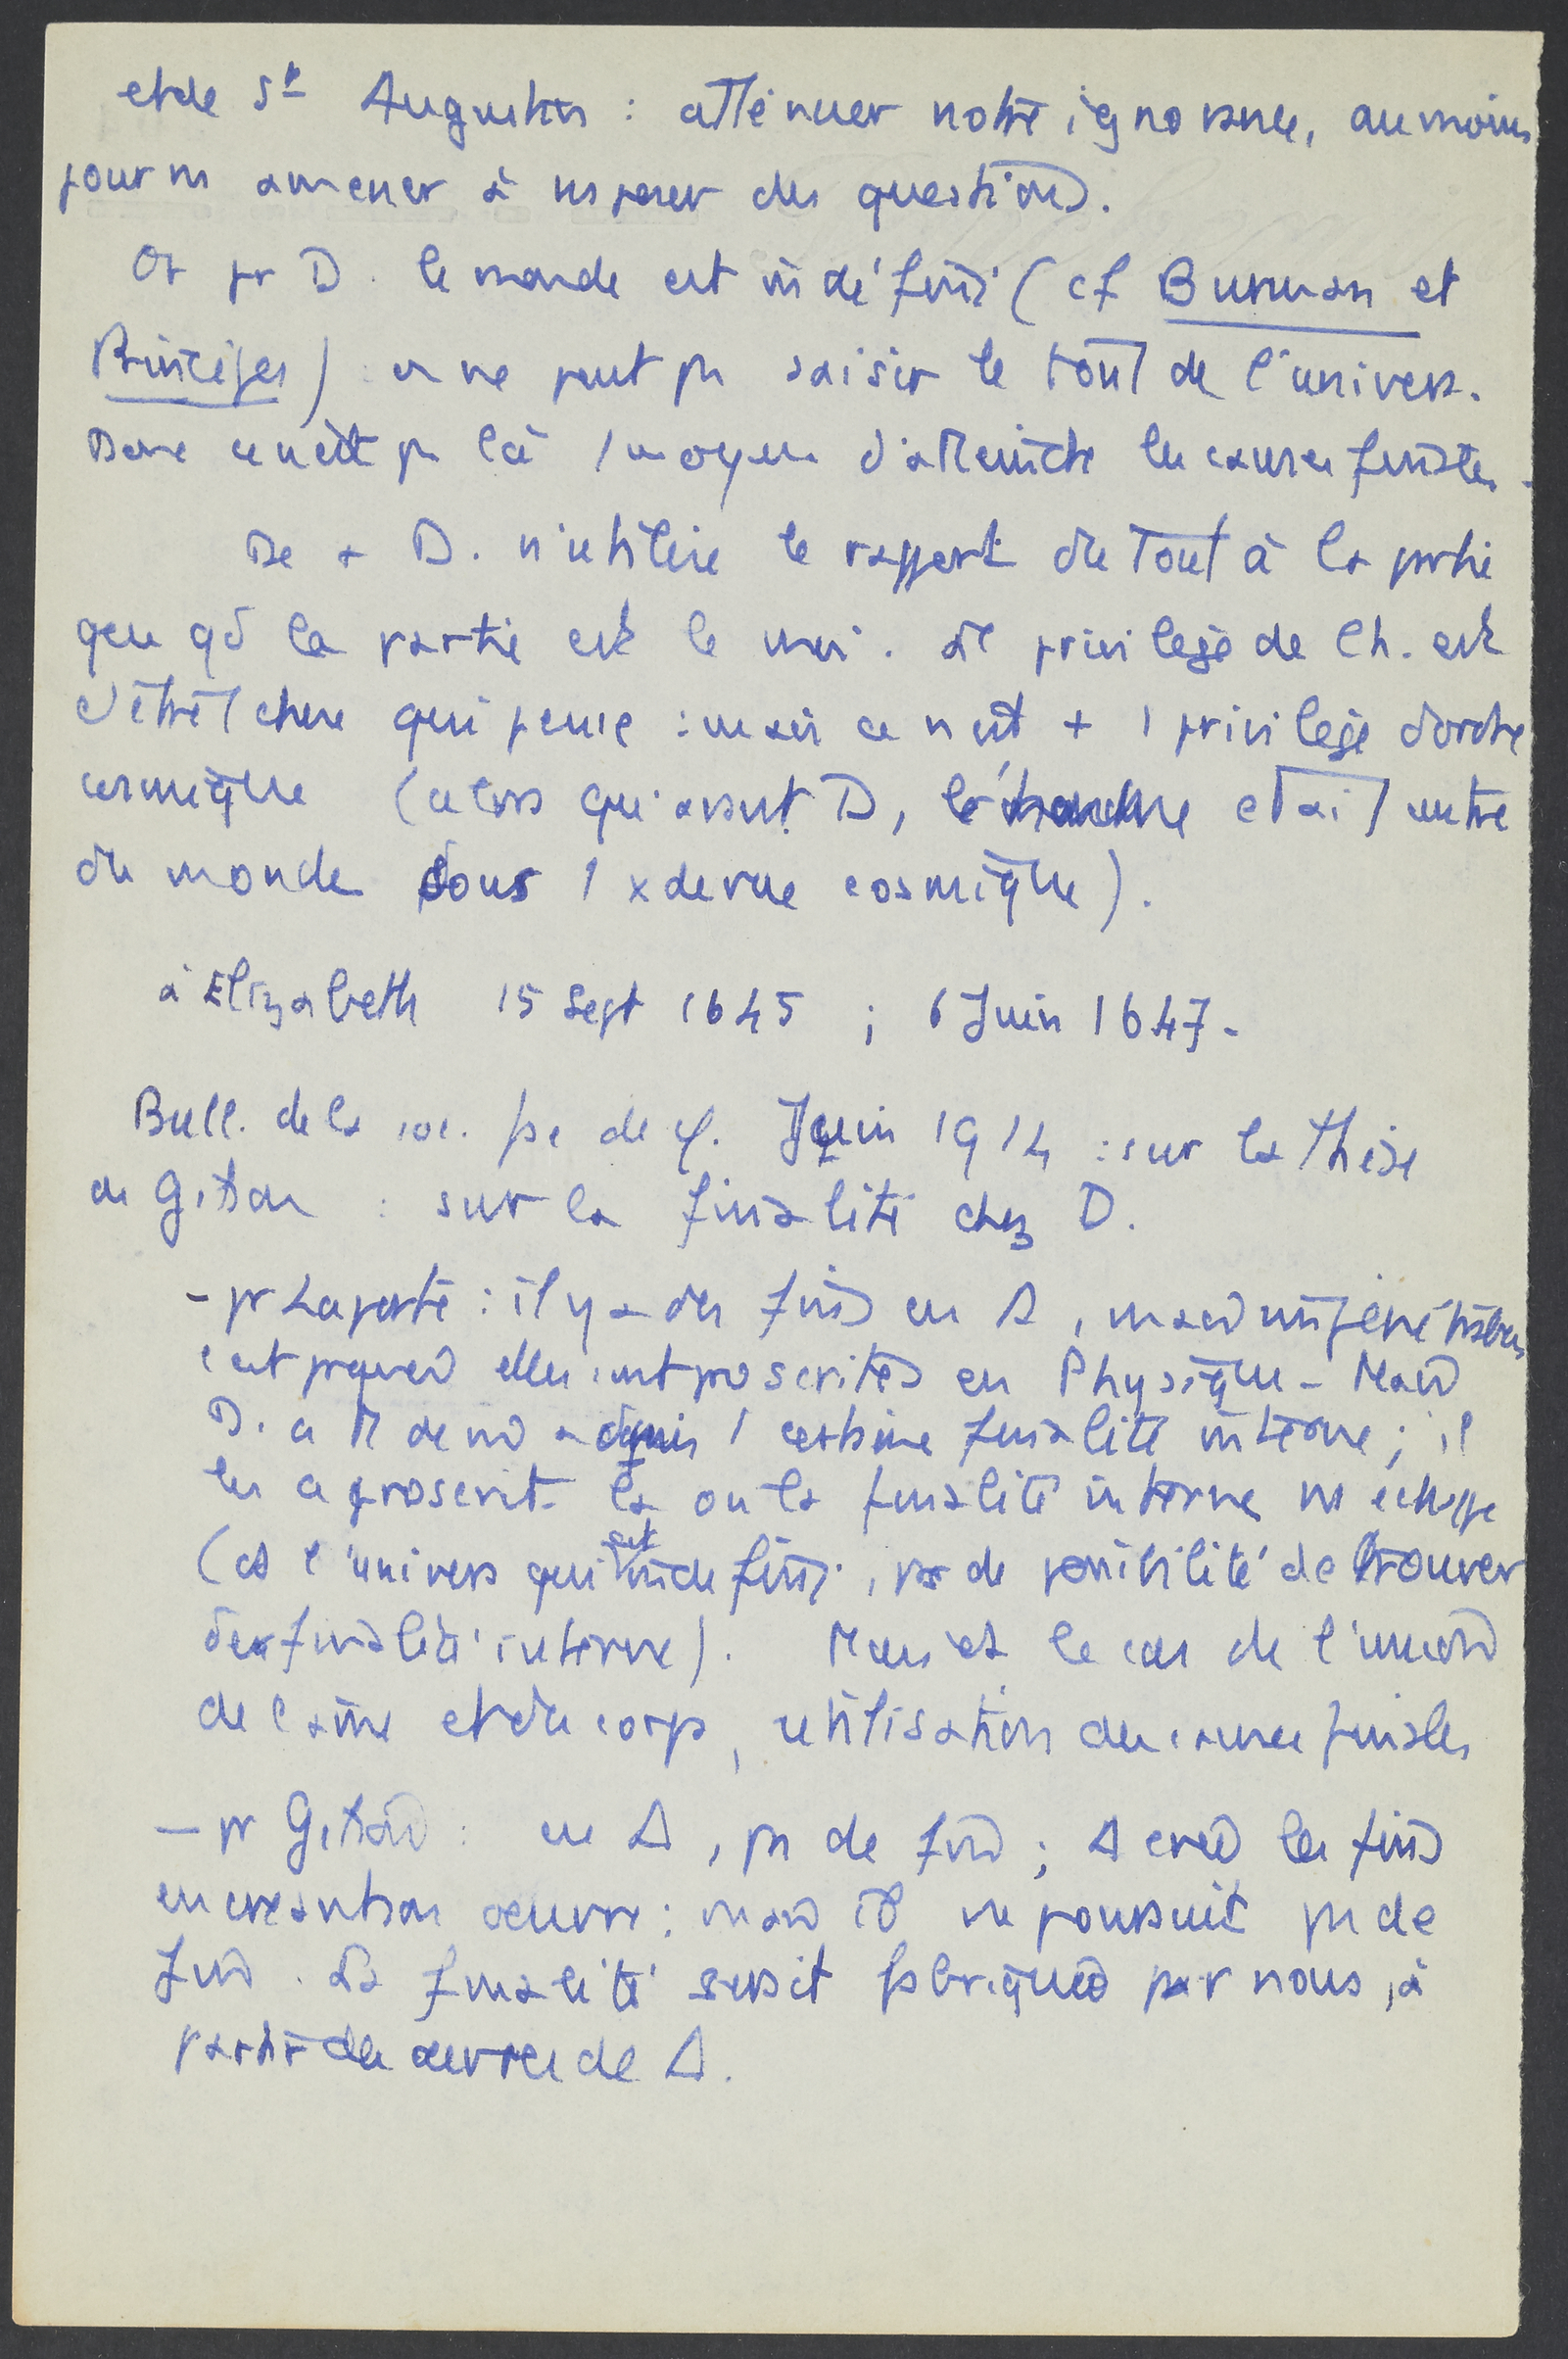 et de St Augustin : atténuer notre ignorance, au moins
pour ns amener à ns poser des questions.
Or pr D. le monde est indéfini (cf Burman et
Principes) : on ne peut ps saisir le tout de l'univers.
Donc ce n'est ps là 1 moyen d'atteindre les causes finales.
De + D. n'utilise le rapport du Tout à la partie
que qd la partie est le moi. Le privilège de l'h. est
d'être 1 chose qui pense : mais ce n'est + 1 privilège d'ordre
cosmique (alors qu'avant D, l'homme était centre
du monde sous 1 x de vue cosmique).
à Elizabeth 15 Sept 1645 ; 6 Juin 1647.
Bull. de la soc. fse de φ. Juin 1914 : sur la thèse
de Gilson : sur la finalité chez D.
- pr Laporte : il y a des fins en Δ, mais impénétrables
c'est pourquoi elles sont proscrites en Physique - Mais
D. a admis 1 certaine finalité interne ; il
les a proscrit là où la finalité interne ns échappe
(cs l'univers qui est indéfini, pas de possibilité de trouver
de finalité interne). Mais ds le cas de l'union
de l'âme et du corps, utilisation des causes finales
- pr Gilson : en Δ, ps de fins ; Δ crée les fins
en créant son oeuvre ; mais il ne poursuit ps de
fins. La finalité serait fabriquée par nous, à
partir des oeuvres de Δ.